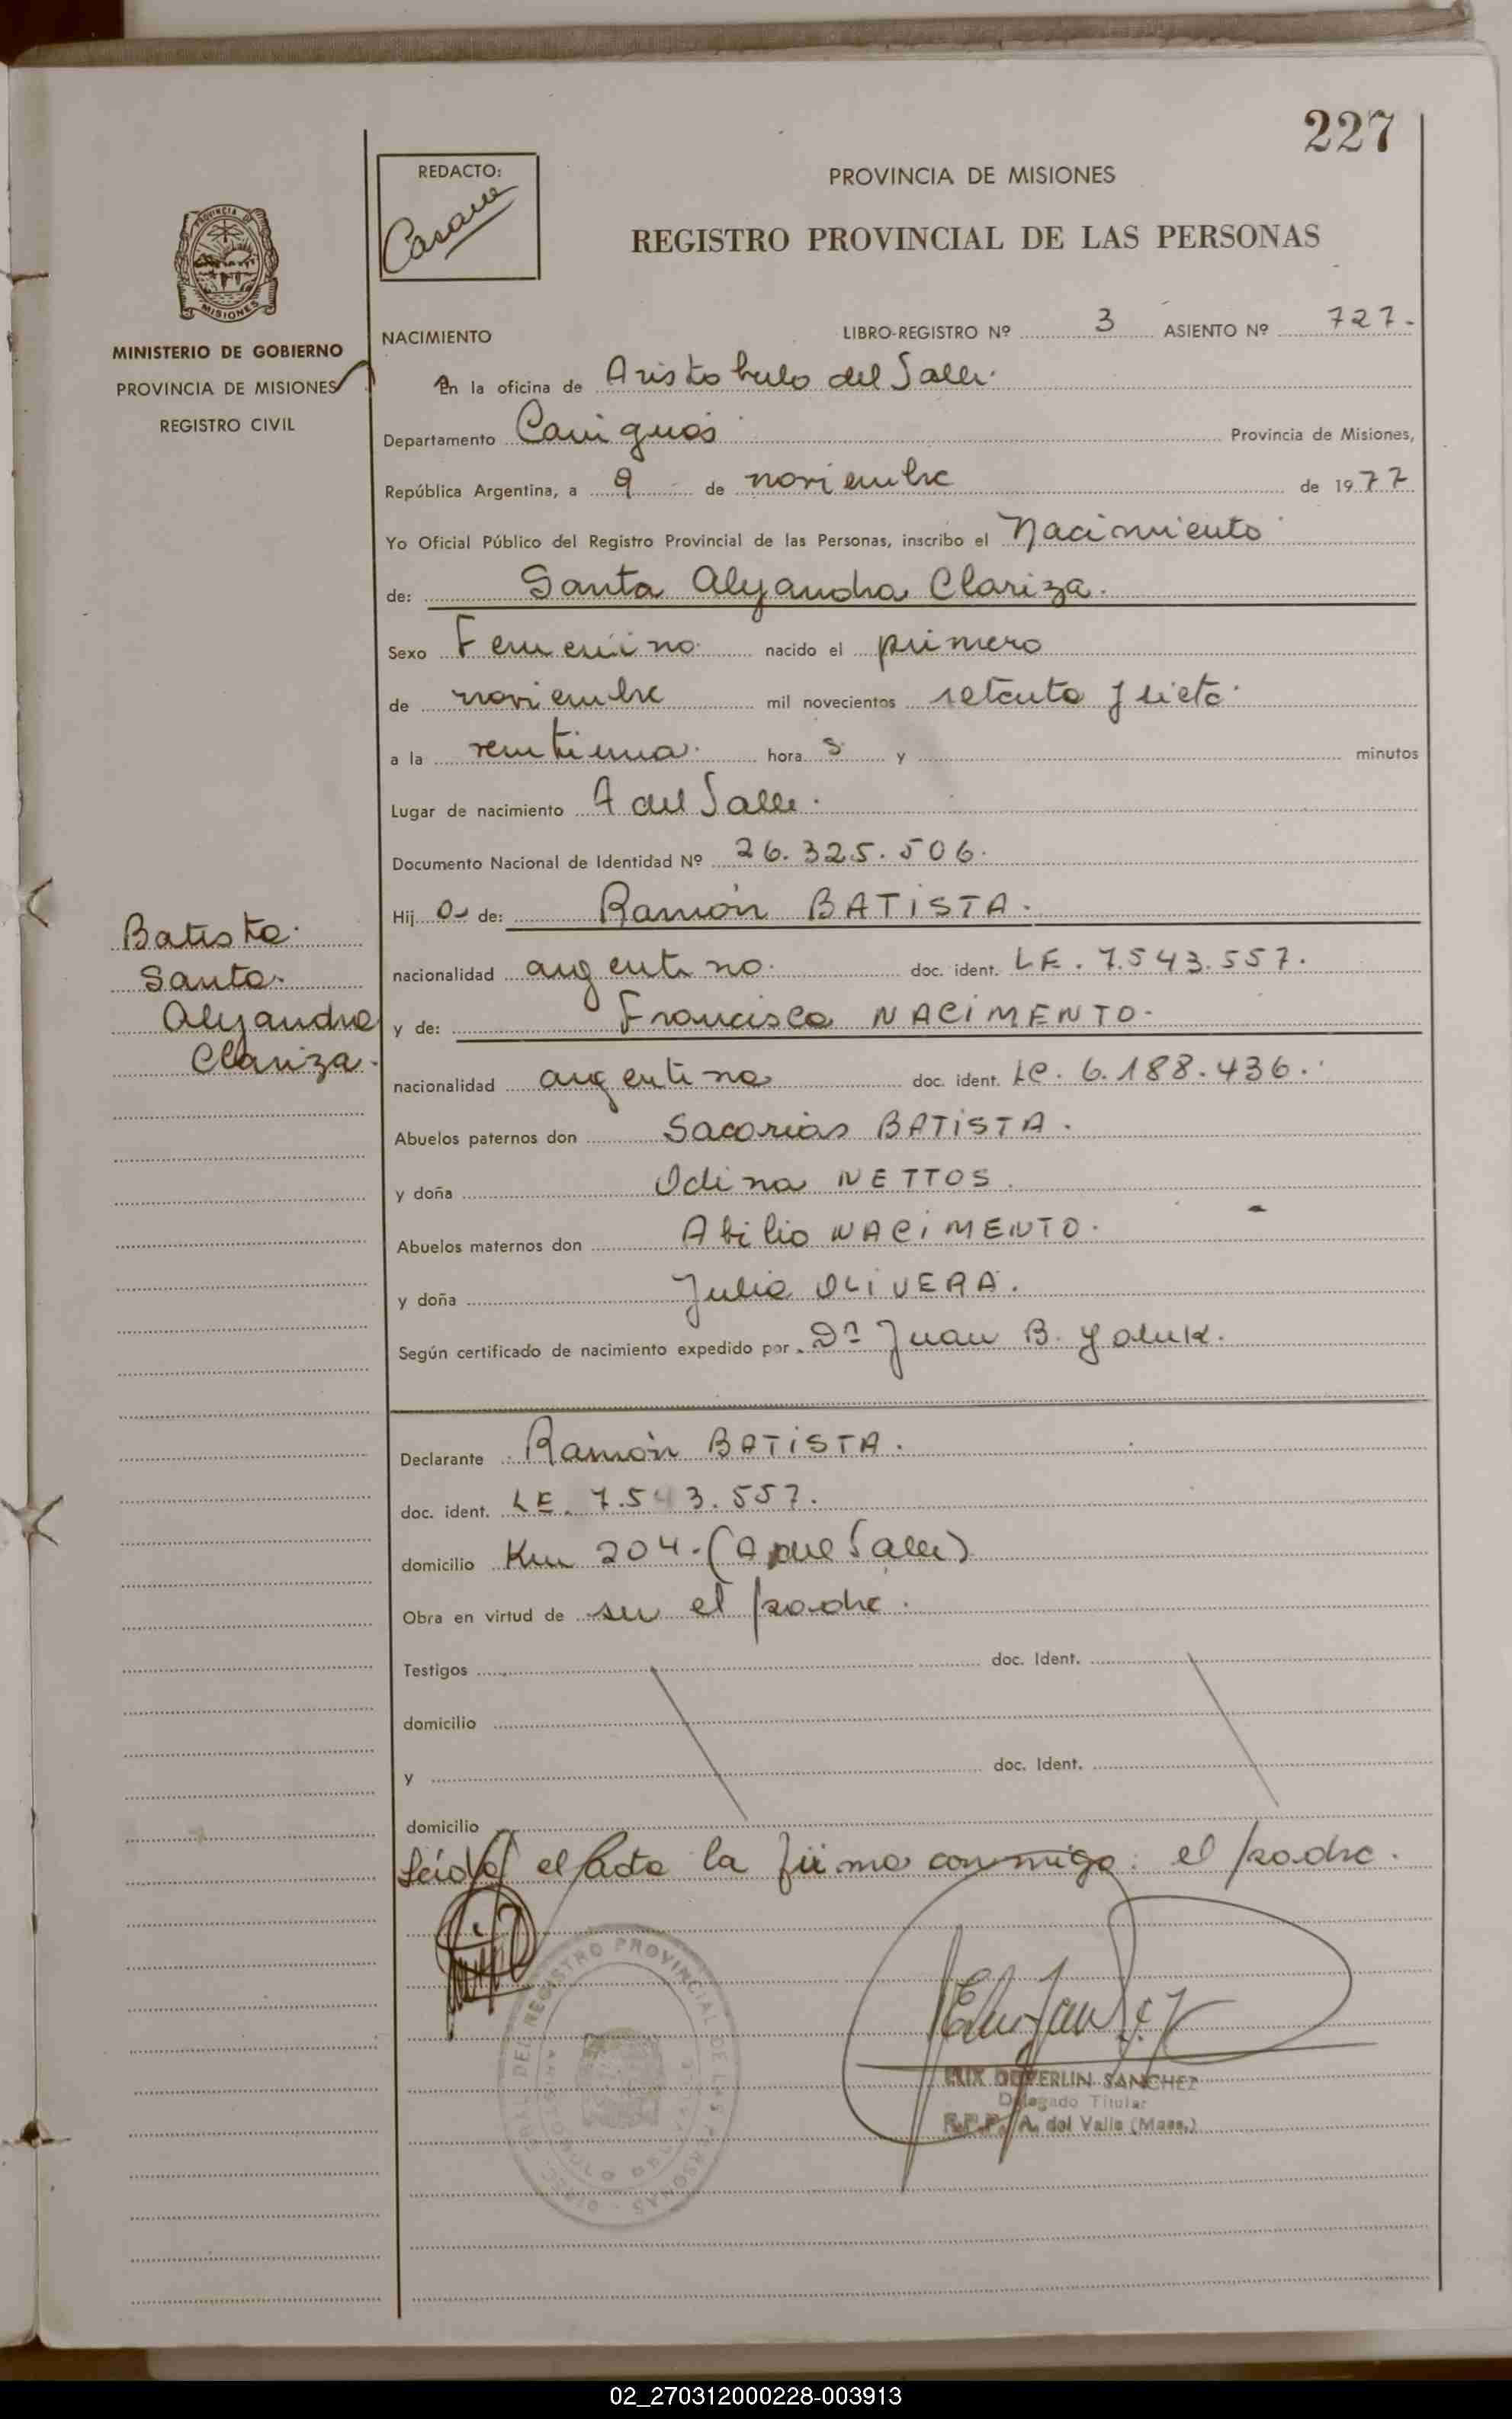 227
REDACTO:
PROVINCIA DE MISIONES
REGISTRO PROVINCIAL DE LAS PERSONAS
PROVINCIA DE MISIONES
MINISTERIO DE GOBIERNO
PROVINCIA DE MISIONES
REGISTRO CIVIL
NACIMIENTO LIBRO-REGISTRO Nº 3 ASIENTO Nº 727.-
En la oficina de Aristobulo del Valle.
Departamento Cainguás Provincia de Misiones,
República Argentina, a 9 de noviembre de 1977
Yo Oficial Público del Registro Provincial de las Personas, inscribo el Nacimiento
de: Santa Alejandra Clariza.
Sexo Femenino. nacido el primero
de noviembre mil novecientos setenta y siete.
a la veintiuna. hora s y minutos
Lugar de nacimiento A del Valle.
Documento Nacional de Identidad Nº 26.325.506.
Hij a de: Ramón BATISTA.
nacionalidad argentino. doc. ident. LE. 7.543.557.
y de: Francisca NACIMENTO.
nacionalidad argentina doc. ident. LC. 6.188.436.
Abuelos paternos don Sacarias BATISTA.
y doña Odina NETTOS.
Abuelos maternos don Abilio NACIMENTO.
y doña Julia OLIVERA.
Según certificado de nacimiento expedido por Dn Juan B.
Batista.
Santa.
Alejandra
Clariza.
Declarante Ramón BATISTA.
doc. ident. LE. 7.543.557.
domicilio Km 204. (A del Valle)
Obra en virtud de ser el padre.
Testigos doc. Ident.
domicilio
y doc. Ident.
domicilio
Leida el Acta la firma conmigo: el padre.
REGISTRO PROVINCIAL DE LAS PERSONAS
DEVERLIN SANCHEZ
Delegado Titular
R.P.P. A. del Valle (Mnes.)
02_270312000228-003913